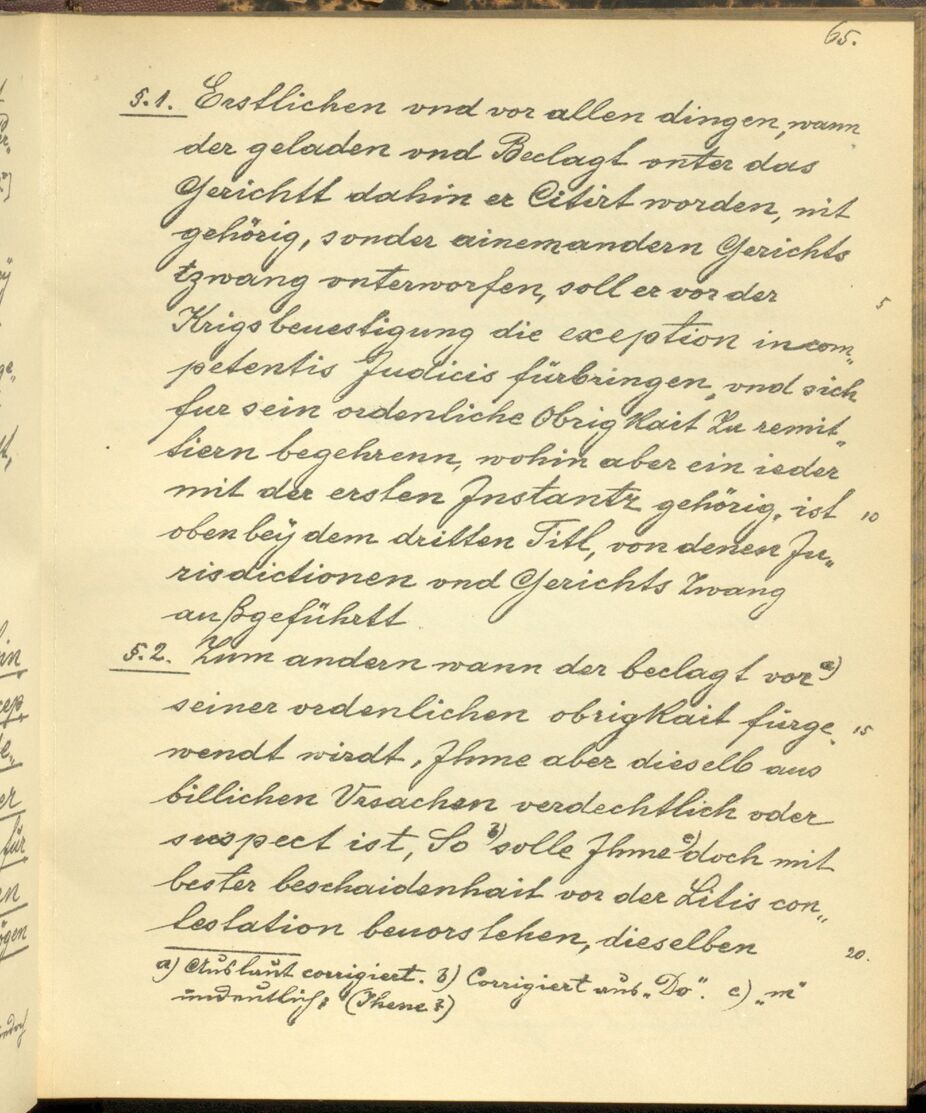 65.
§.1. Erstlichen vnd vor allen dingen, wann
der geladen vnd Beclagt vnter das
Gerichtt dahin er Citirt worden, nit
gehörig, sonder ainem andern Gerichts
tzwang vnterworfen, soll er vor der
5
Krigsbeuestigung die exception incom„
petentis Judicis fürbringen, vnd sich
fur sein ordenliche Obrigkait Zu remit„
tiern begehrenn, wohin aber ein ieder
mit der ersten Jnstantz gehörig, ist
10
oben beÿ dem dritten Titl, von denen Ju„
risdictionen vnd Gerichts Zwang
außgeführtt
§.2. Zum andern wann der beclagt vor a)
seiner ordenlichen obrigkait fürge„
15
wendt wirdt, Jhme aber dieselb aus
billichen Vrsachen verdechtlich oder
suspect ist, So b) solle Jhme c) doch mit
bester beschaidenhait vor der Litis con„
testation beuorstehen, dieselben
20.
a) Auslaut corrigiert. b) Corrigiert aus „Do". c) „m"
undeutlich; (Ihene?)